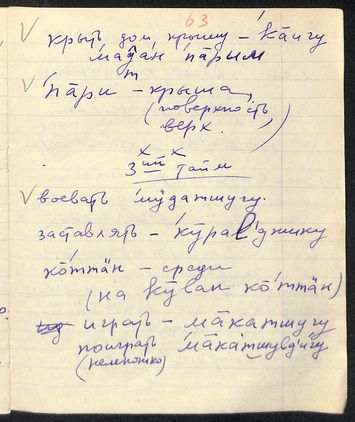 63
крыть дом, крышу – ка̄игу
ма̄дан па̄рым
па̄ри – крыша,
(поверхность,
верх.)
× ×
3ий тайм
воевать мӱдатшугу.
заставлять – кӯраlджику
кȫттӓн – среди
(на кӯван кȫттӓн)
играть – ма̄катшугу
поиграть ма̄катшувлʼигу
(немножко)